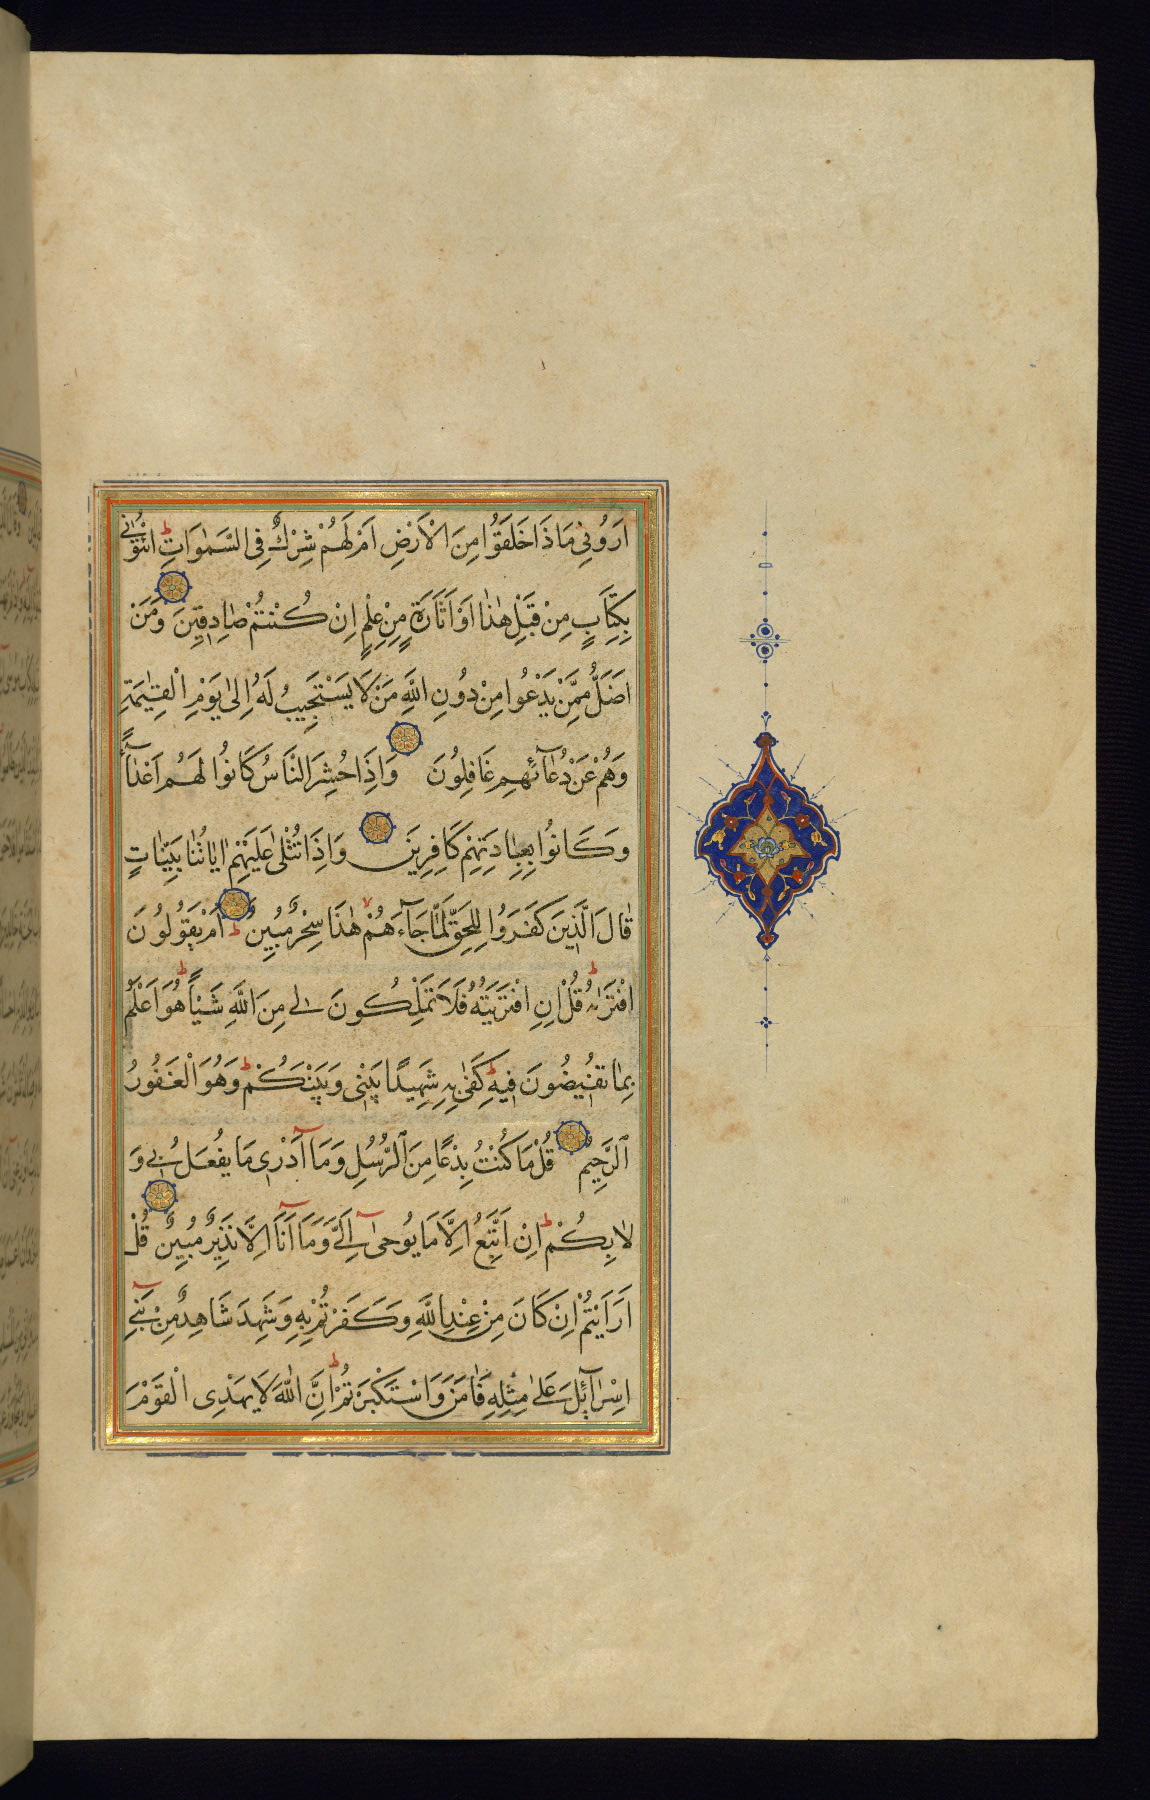 اَرُونِي مَاذَا خَلَقُوا مِنَ الْاَرْضِ اَمْ لَهُمْ شِرْكٌ فِي السَّمٰوَاتِ ائْتُونِي
بِكِتَابٍ مِنْ قَبْلِ هٰذَا اَوْ اَثَارَةٍ مِنْ عِلْمٍ اِنْ كُنْتُمْ صَادِقِينَ وَمَنْ
اَضَلُّ مِمَّنْ يَدْعُوا مِنْ دُونِ اللّٰهِ مَنْ لَا يَسْتَجِيبُ لَهُ اِلىٰ يَوْمِ الْقِيٰمَةِ
وَهُمْ عَنْ دُعَآئِهِمْ غَافِلُونَ وَاِذَا حُشِرَ النَّاسُ كَانُوا لَهُمْ اَعْدَآءً
وَكَانُوا بِعِبَادَتِهِمْ كَافِرِينَ وَاِذَا تُتْلىٰ عَلَيْهِمْ اٰيَاتُنَا بَيِّنَاتٍ
قَالَ الَّذِينَ كَفَرُوا لِلْحَقِّ لَمَّا جَآءَهُمْ هٰذَا سِحْرٌ مُبِينٌ اَمْ يَقُولُونَ
افْتَرٰيهُ قُلْ اِنِ افْتَرَيْتُهُ فَلَا تَمْلِكُونَ لِي مِنَ اللّٰهِ شَيْئًا هُوَ اَعْلَمُ
بِمَا تُفِيضُونَ فِيهِ كَفىٰ بِهِ شَهِيدًا بَيْنِي وَبَيْنَكُمْ وَهُوَ الْغَفُورُ
الرَّحِيمُ قُلْ مَا كُنْتُ بِدْعًا مِنَ الرُّسُلِ وَمَا اَدْرِي مَا يُفْعَلُ بِي وَ
لَا بِكُمْ اِنْ اَتَّبِعُ اِلَّا مَا يُوحىٰ اِلَيَّ وَمَا اَنَا اِلَّا نَذِيرٌ مُبِينٌ قُلْ
اَرَاَيْتُمْ اِنْ كَانَ مِنْ عِنْدِ اللّٰهِ وَكَفَرْتُمْ بِهِ وَشَهِدَ شَاهِدٌ مِنْ بَنِي
اِسْرَآئِلَ عَلىٰ مِثْلِهِ فَاٰمَنَ وَاسْتَكْبَرْتُمْ اِنَّ اللّٰهَ لَا يَهْدِي الْقَوْمَ